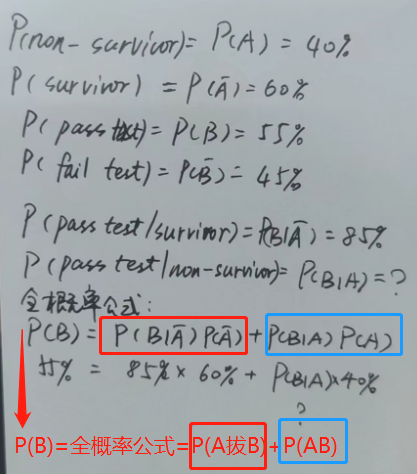 P(non-survivor)= P(A) = 40%
P(survivor) = P(Ā)=60%
P(pass test)= P(B)= 55%
P(fail test)= P(B̄)= 45%
P(pass test/survivor)=P(B|Ā)=85%
P(pass test/non-survivor)= P(B|A)=?
全概率公式:
P(B)= P(B|Ā)P(Ā)+P(B|A)P(A)
55% = 85%×60%+P(B|A)×40%
?
P(B)=全概率公式=P(A拔B)+P(AB)